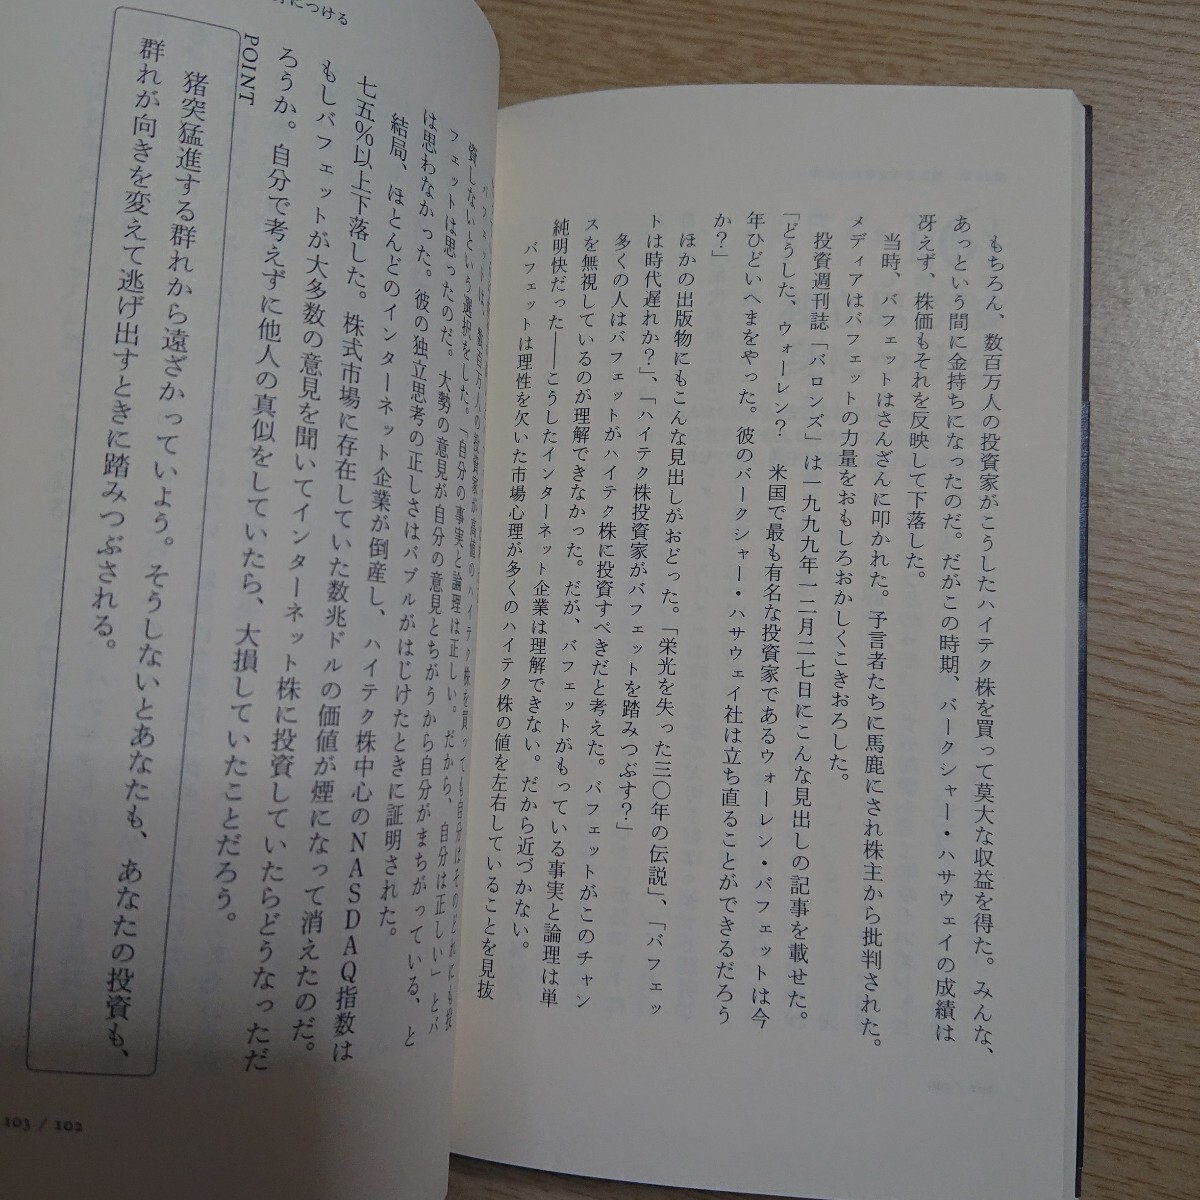 もちろん、数百万人の投資家がこうしたハイテク株を買って莫大な収益を得た。みんな、
あっという間に金持ちになったのだ。だがこの時期、バークシャー・ハサウェイの成績は
冴えず、株価もそれを反映して下落した。
当時、バフェットはさんざんに叩かれた。予言者たちに馬鹿にされ株主から批判された。
メディアはバフェットの力量をおもしろおかしくこきおろした。
投資週刊誌「バロンズ」は一九九九年一二月二七日にこんな見出しの記事を載せた。
「どうした、ウォーレン？　米国で最も有名な投資家であるウォーレン・バフェットは今
年ひどいへまをやった。彼のバークシャー・ハサウェイ社は立ち直ることができるだろう
か？」
ほかの出版物にもこんな見出しがおどった。「栄光を失った三〇年の伝説」、「バフェッ
トは時代遅れか？」、「ハイテク株投資家がバフェットを踏みつぶす？」
多くの人はバフェットがハイテク株に投資すべきだと考えた。バフェットがこのチャン
スを無視しているのが理解できなかった。だが、バフェットがもっている事実と論理は単
純明快だった――こうしたインターネット企業は理解できない。だから近づかない。
バフェットは理性を欠いた市場心理が多くのハイテク株の値を左右していることを見抜
につける
バフェットは、数百万人の投資家が高値のハイテク株を買っても自分はそのどれにも投
資しないという選択をした。「自分の事実と論理は正しい。だから、自分は正しい」とバ
フェットは思ったのだ。大勢の意見が自分の意見とちがうから自分がまちがっている、と
は思わなかった。彼の独立思考の正しさはバブルがはじけたときに証明された。
結局、ほとんどのインターネット企業が倒産し、ハイテク株中心のNASDAQ指数は
七五％以上下落した。株式市場に存在していた数兆ドルの価値が煙になって消えたのだ。
もしバフェットが大多数の意見を聞いてインターネット株に投資していたらどうなっただ
ろうか。自分で考えずに他人の真似をしていたら、大損していたことだろう。
POINT
猪突猛進する群れから遠ざかっていよう。そうしないとあなたも、あなたの投資も、
群れが向きを変えて逃げ出すときに踏みつぶされる。
103 / 102